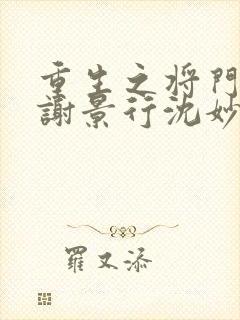 重生之将門
謝景行沈妙
羅又添